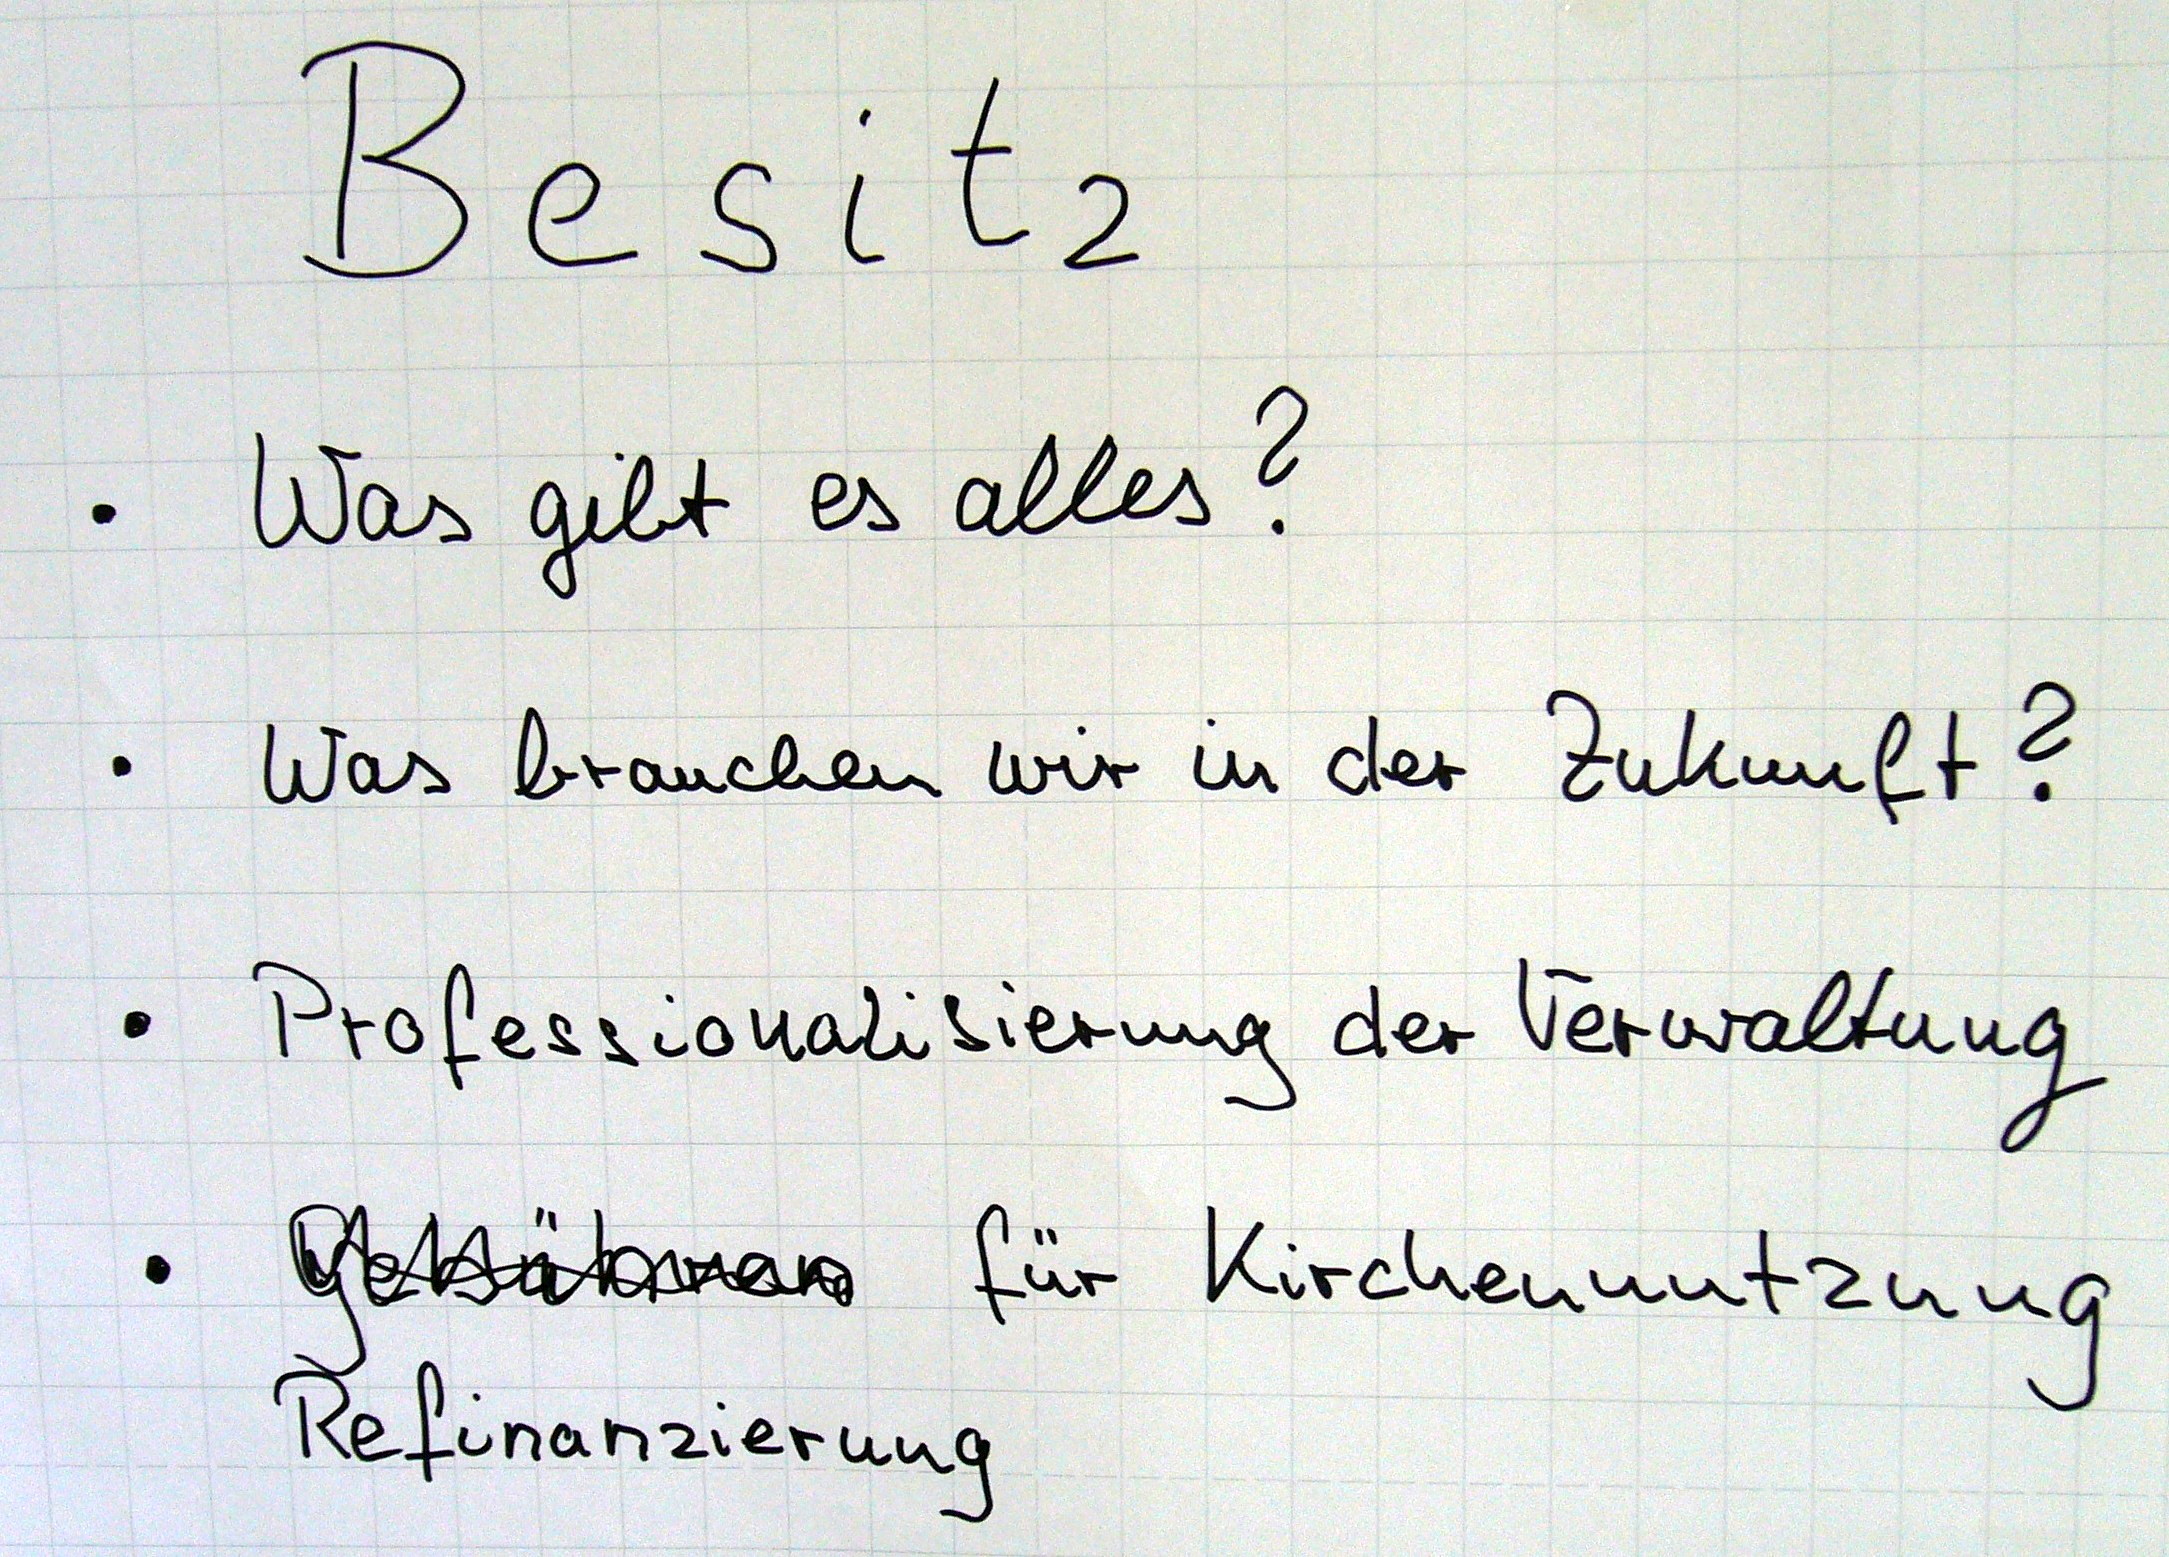 Besitz
• Was gibt es alles?
• Was brauchen wir in der Zukunft?
• Professionalisierung der Verwaltung
• Gebühren für Kirchennutzung
Refinanzierung